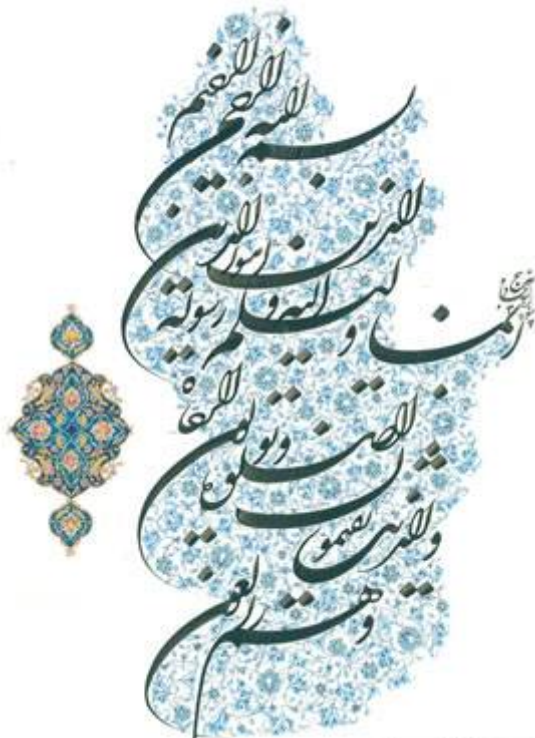 بسم الله الرحمن الرحیم
انما ولیکم الله و رسوله
و الذین امنوا الذین
یقیمون الصلوة
و یوتون الزکاة
و هم راکعون